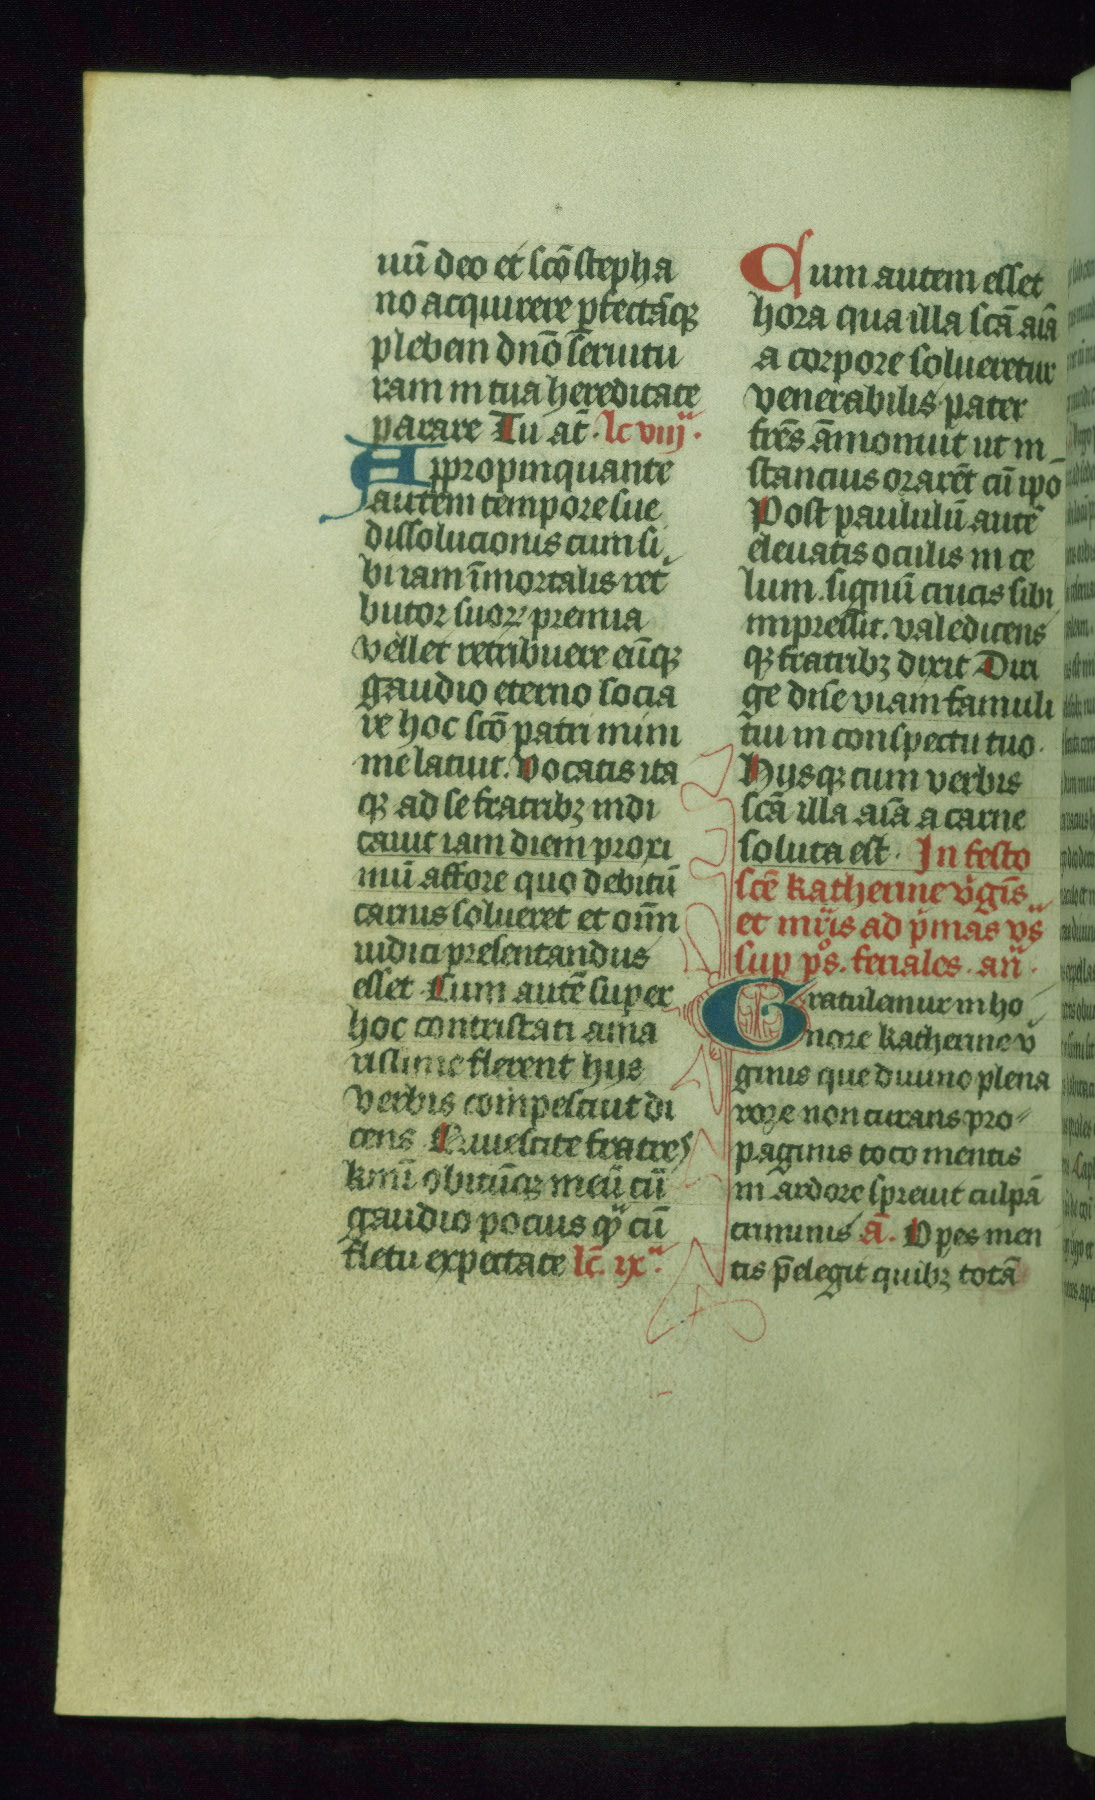 uū deo et scō stepha
no acquirere ꝑfectāqꝫ
plebem dnō seruitu
ram in tua hereditate
parare Tu aū. lc viij.
Appropinquante
autem tempore sue
dissolucionis cum si
bi iam īmortalis ret
butor suoꝝ premia
vellet retribuere eūqꝫ
gaudio eterno socia
re hoc scō patri mini
me latuit. Vocatis ita
qꝫ ad se fratribꝫ indi
cauit iam diem proxi
mū affore quo debitū
carnis solueret et om̄
iudici presentandus
esset Cum autē super
hoc contristati ama
rissime flerent hijs
verbis compescuit di
cens Quiescite fratres
kmī obitūqꝫ meū cū
gaudio pocius qͫ cū
fletu expectate lc̄. ix.
Cum autem esset
hora qua illa scā aīa
a corpore solueretur
venerabilis pater
frēs āmonuit ut in
stancius orarēt cū ipo
Post paululū autē
eleuatis oculis in ce
lum. signū crucis sibi
impressit. valedicens
qꝫ fratribꝫ dixit Diri
ge dn̄e viam famuli
tui in conspectu tuo.
Hijsqꝫ cum verbis
scā illa aīa a carne
soluta est. In festo
scē katherine v̄gīs
et mr̄is ad p̄mas vs̄
sup pŝ. feriales. an̄.
Gratulemur in ho
nore katherine v̄
ginis que diuino plena
rore non curans pro
paginis toto mentis
in ardore spreuit culpā
criminis ā. Opes men
tis p̄elegit quibꝫ totā